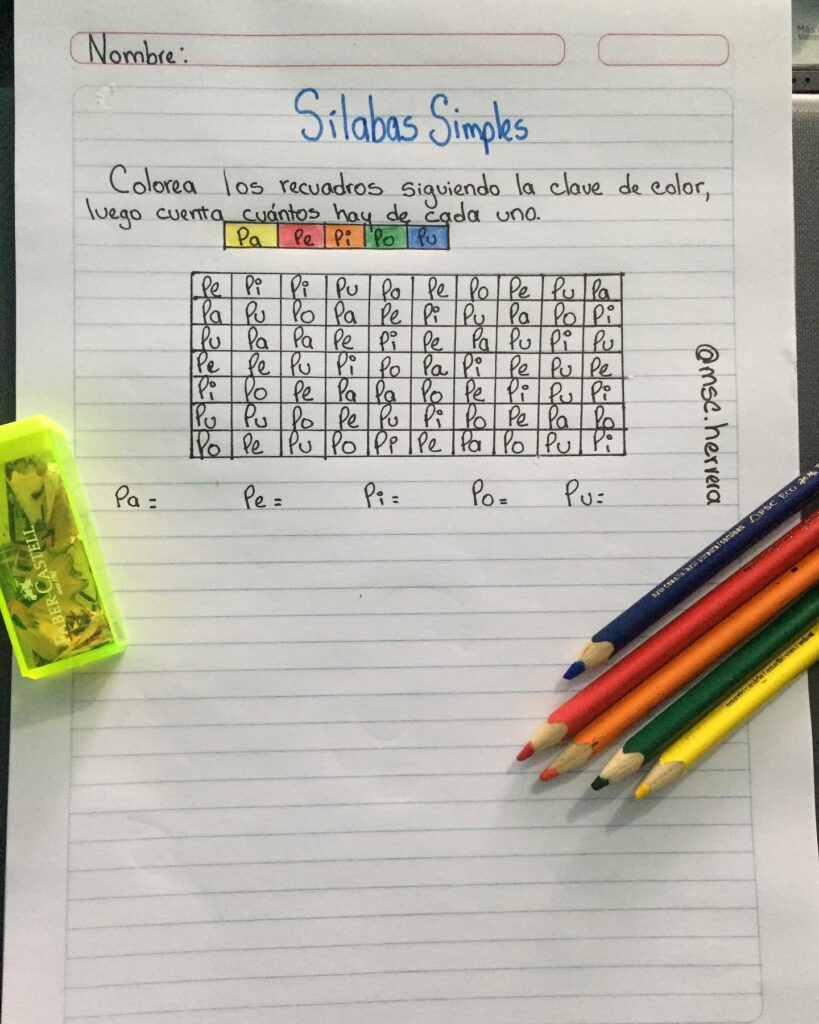 Nombre:
Sílabas Simples
Colorea los recuadros siguiendo la clave de color,
luego cuenta cuántos hay de cada uno.
Pa Pe Pi Po Pu
Pe Pi Pi Pu Po Pe Po Pe Pu Pa
Pa Pu Po Pa Pe Pi Pu Pa Po Pi
Pu Pa Pa Pe Pi Pe Pa Pu Pi Pu
Pe Pe Pu Pi Po Pa Pi Pe Pu Pe
Pi Po Pe Pa Pa Po Pe Pi Pu Pi
Pu Pu Po Pe Pu Pi Po Pe Pa Po
Po Pe Pu Po Pi Pe Pa Po Pu Pi
Pa = Pe = Pi = Po = Pu =
@msc.herrera
FABER-CASTELL